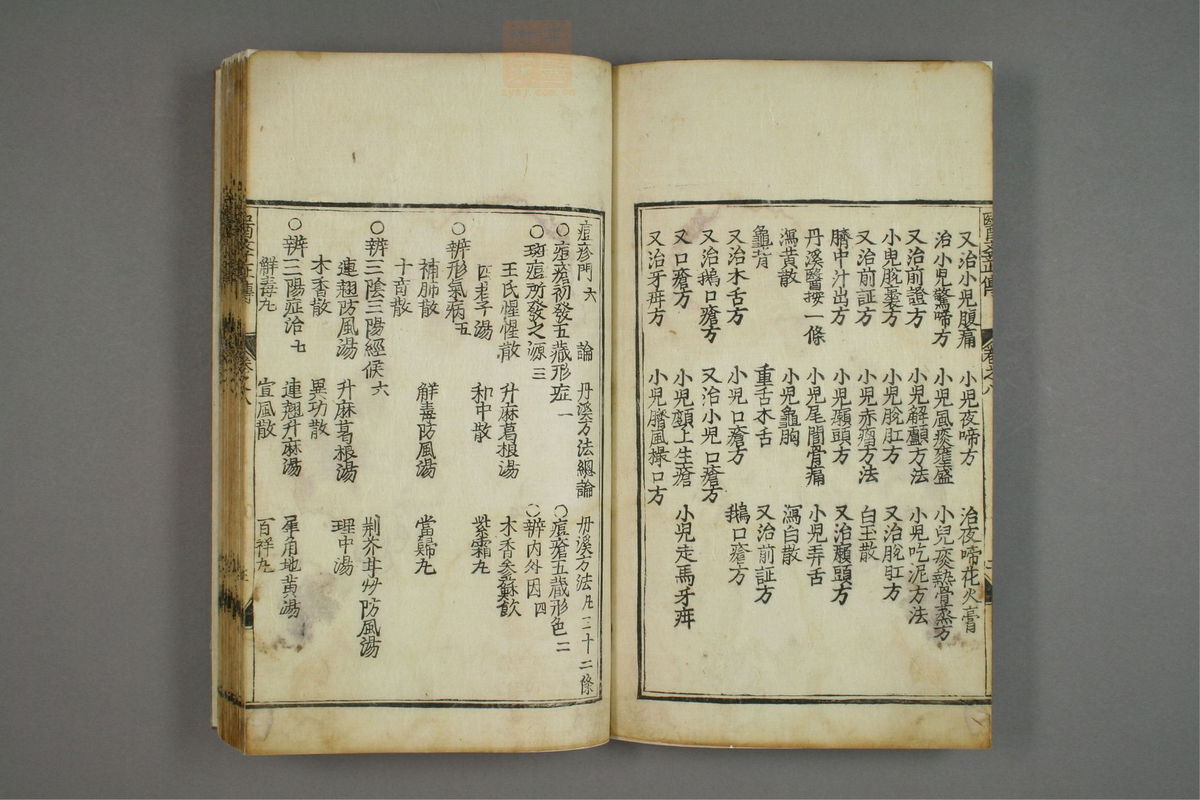 又治小兒腹痛 小兒夜啼方 治夜啼花火膏
治小兒驚啼方 小兒風痰壅盛 小兒痰熱骨蒸方
又治前證方 小兒解顱方法 小兒吃泥方法
小兒脫囊方 小兒脫肛方 又治脫肛方
又治前証方 小兒赤瘤方法 白玉散
臍中汁出方 小兒癩頭方 又治癩頭方
丹溪醫按一條 小兒尾閭骨痛 小兒弄舌
瀉黃散 小兒龜胸 瀉白散
龜背 重舌木舌 又治前証方
又治木舌方 小兒口瘡方 鵝口瘡方
又治鵝口瘡方 又治小兒口瘡方
又口瘡方 小兒顖上生瘡 小兒走馬牙疳
又治牙疳方 小兒臍風撮口方
醫學正傳 卷之八
痘疹門六 論 丹溪方法總論 丹溪方法凡三十二條
○痘瘡初發五藏形症一 ○痘瘡五藏形色二
○斑痘所發之源三 ○辨內外因四
王氏惺惺散 升麻葛根湯 木香參蘇飲
四君子湯 和中散 紫霜丸
○辨形氣病五
補肺散 解毒防風湯 當歸丸
十奇散
○辨三陰三陽經候六 荊芥甘草防風湯
連翹防風湯 升麻葛根湯 理中湯
木香散 異功散
○辨三陽症治七 連翹升麻湯 犀角地黃湯
解毒丸 宣風散 百祥丸
醫學正傳 卷之八